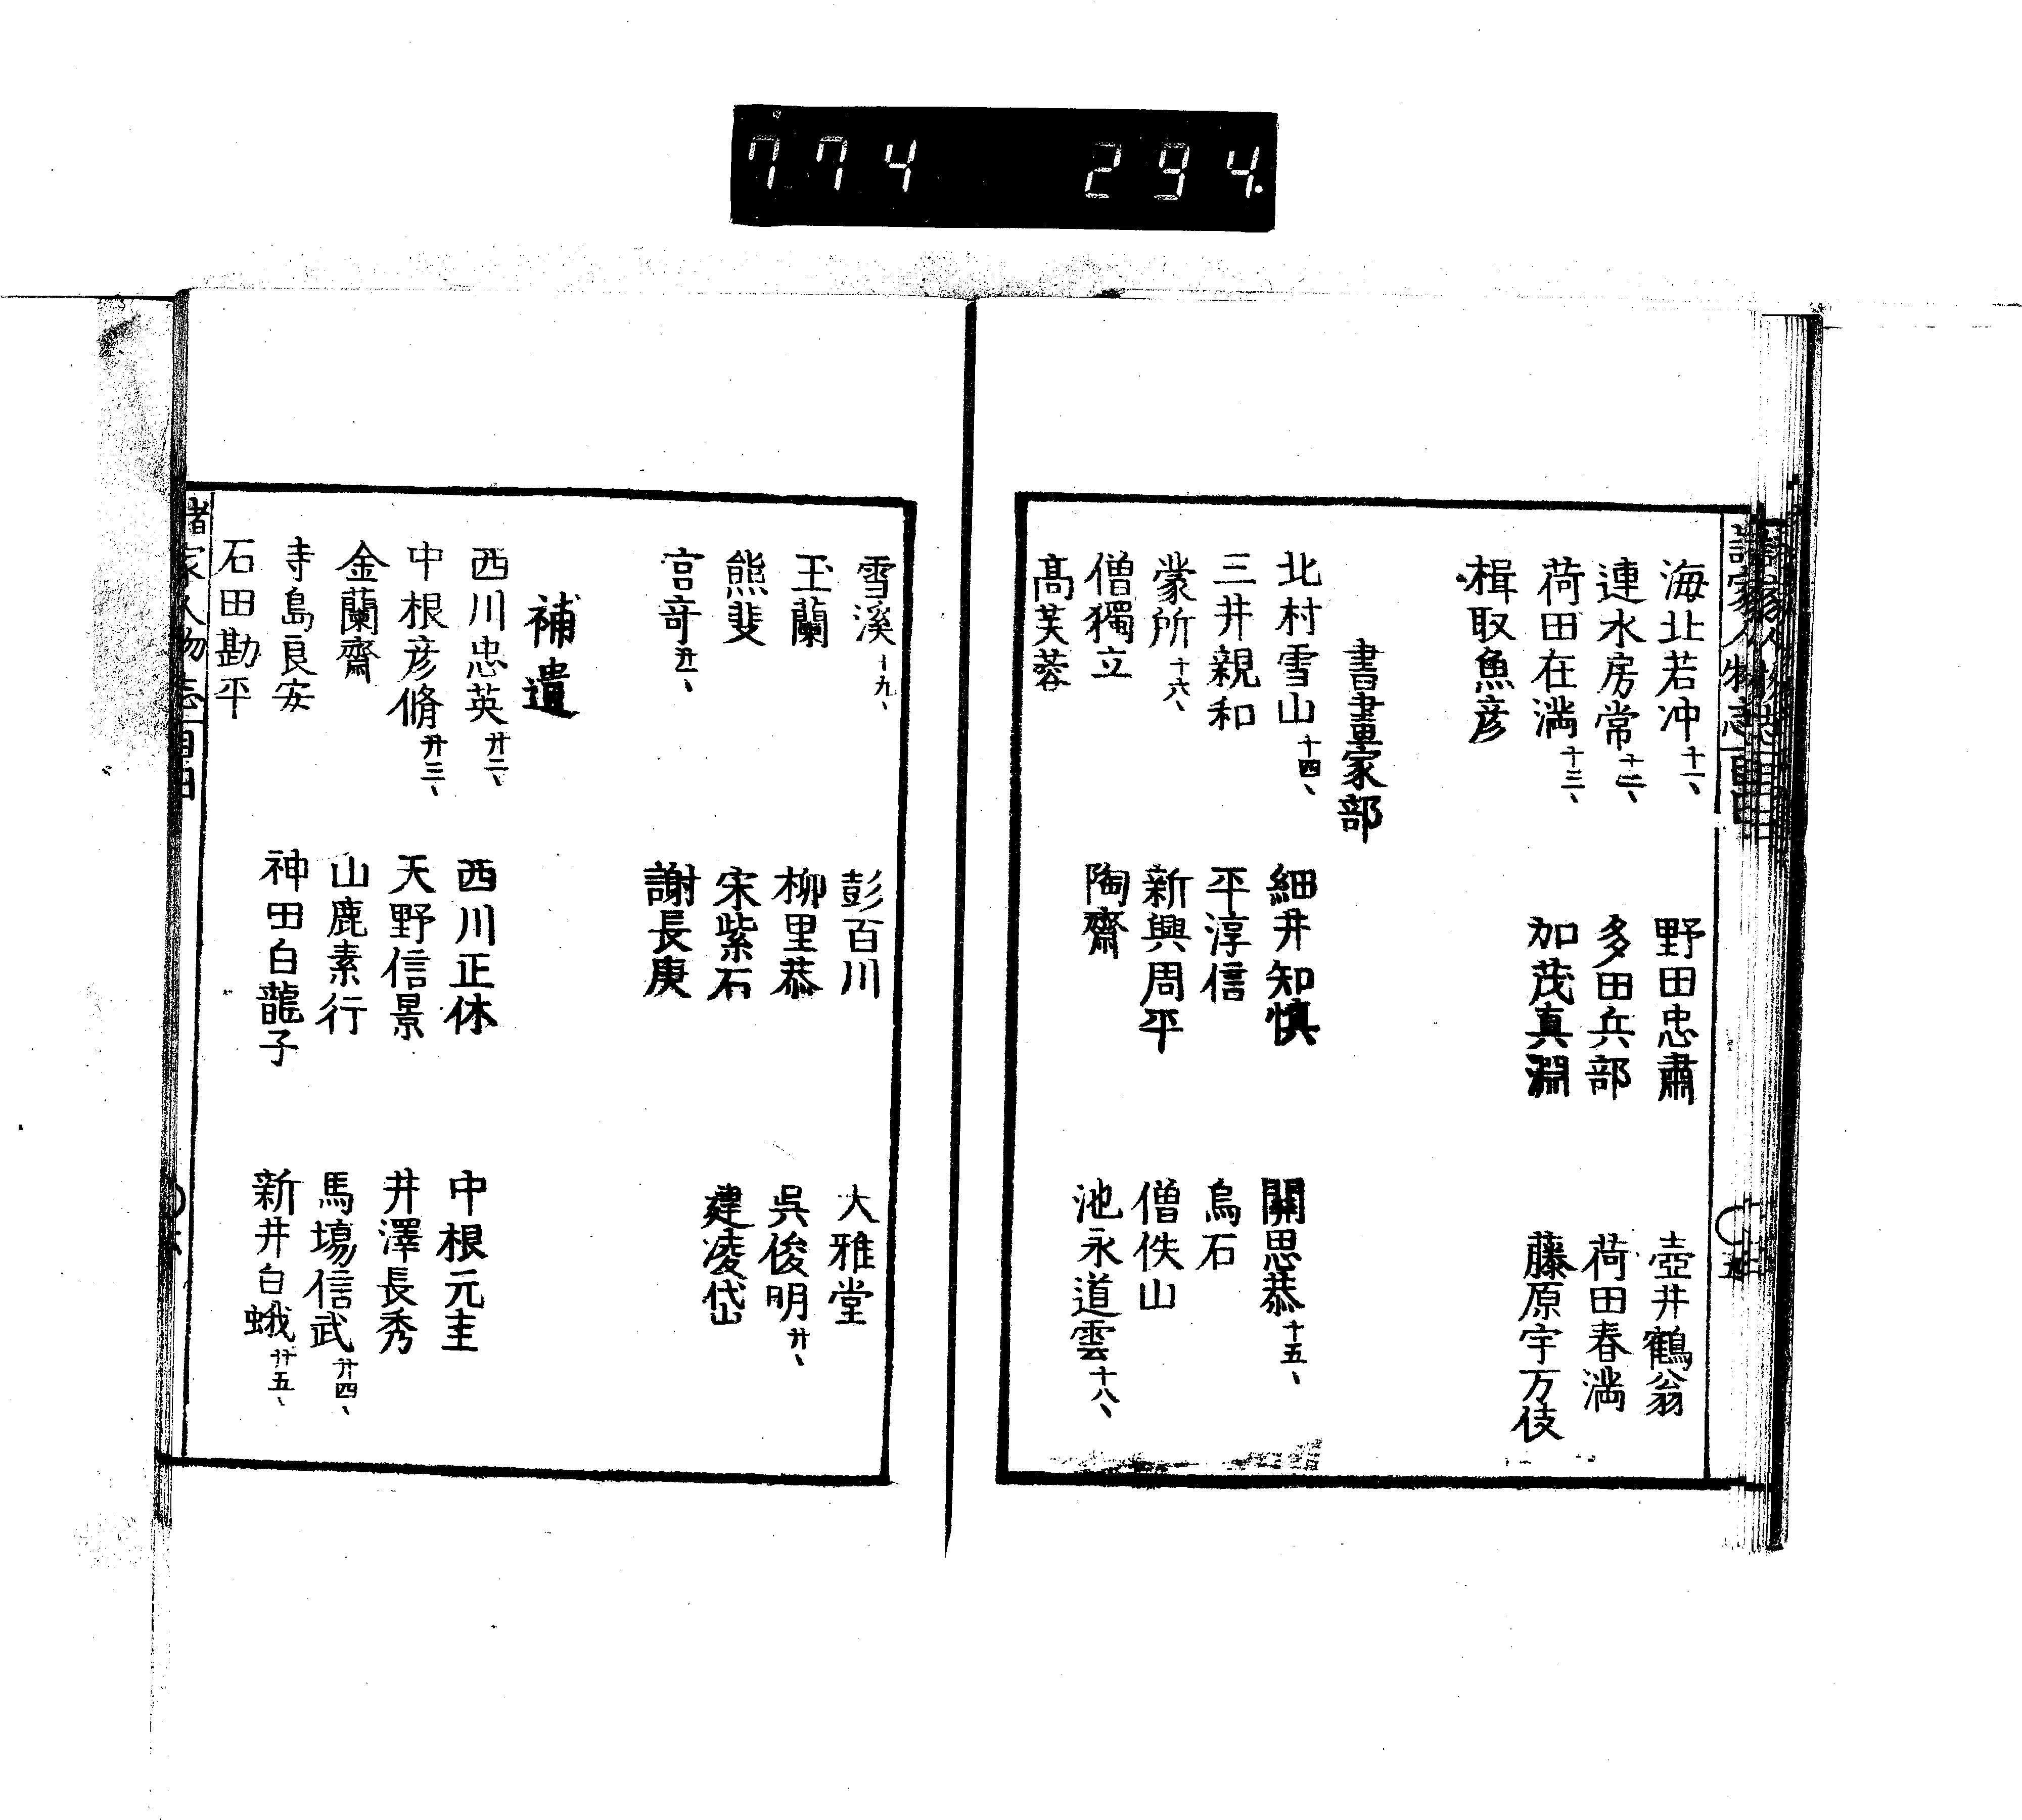 774 294.
海北若冲十一、 野田忠肅 壺井鶴翁
連水房常十二、 多田兵部 荷田春満
荷田在満十三、 加茂真淵 藤原宇万伎
楫取魚彦
書畫家部
北村雪山十四、 細井知慎 關思恭十五、
三井親和 平淳信 烏石
蒙所十六、 新興周平 僧佚山
僧獨立 陶齋 池永道雲十八、
髙芙蓉
雪溪十九、 彭百川 大雅堂
玉蘭 柳里恭 呉俊明廾、
熊斐 宋紫石 建凌岱
宮竒廾一、 謝長庚
補遺
西川忠英廾二、 西川正休 中根元圭
中根彦脩廾三、 天野信景 井澤長秀
金蘭齋 山鹿素行 馬塲信武廾四、
寺島良安 神田白龍子 新井白蛾廾五、
石田勘平
諸家人物志 目田